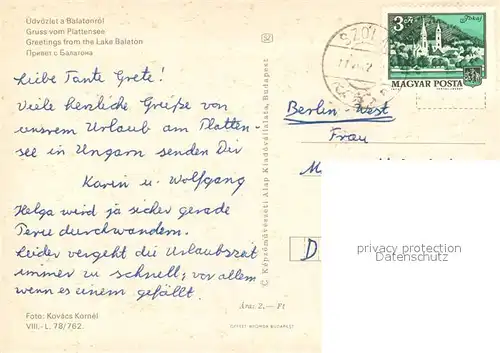 Üdvözlet a Balatonról
Gruss vom Plattensee
Greetings from the Lake Balaton
Привет с Балатона
Liebe Tante Grete!
Viele herzliche Grüße von
unsrem Urlaub am Platten-
see in Ungarn senden Dir
Karin u. Wolfgang
Helga wird ja sicher gerade
Peru durchwandern.
Leider vergeht die Urlaubszeit
immer zu schnell, vor allem
wenn es einem gefällt.
Foto: Kovács Kornél
VIII.-L. 78/762.
Ára: 2,— Ft
© Képzőművészeti Alap Kiadóvállalata, Budapest
3 Ft
Tokaj
MAGYAR POSTA
Berlin West
Frau
D
privacy protection
Datenschutz